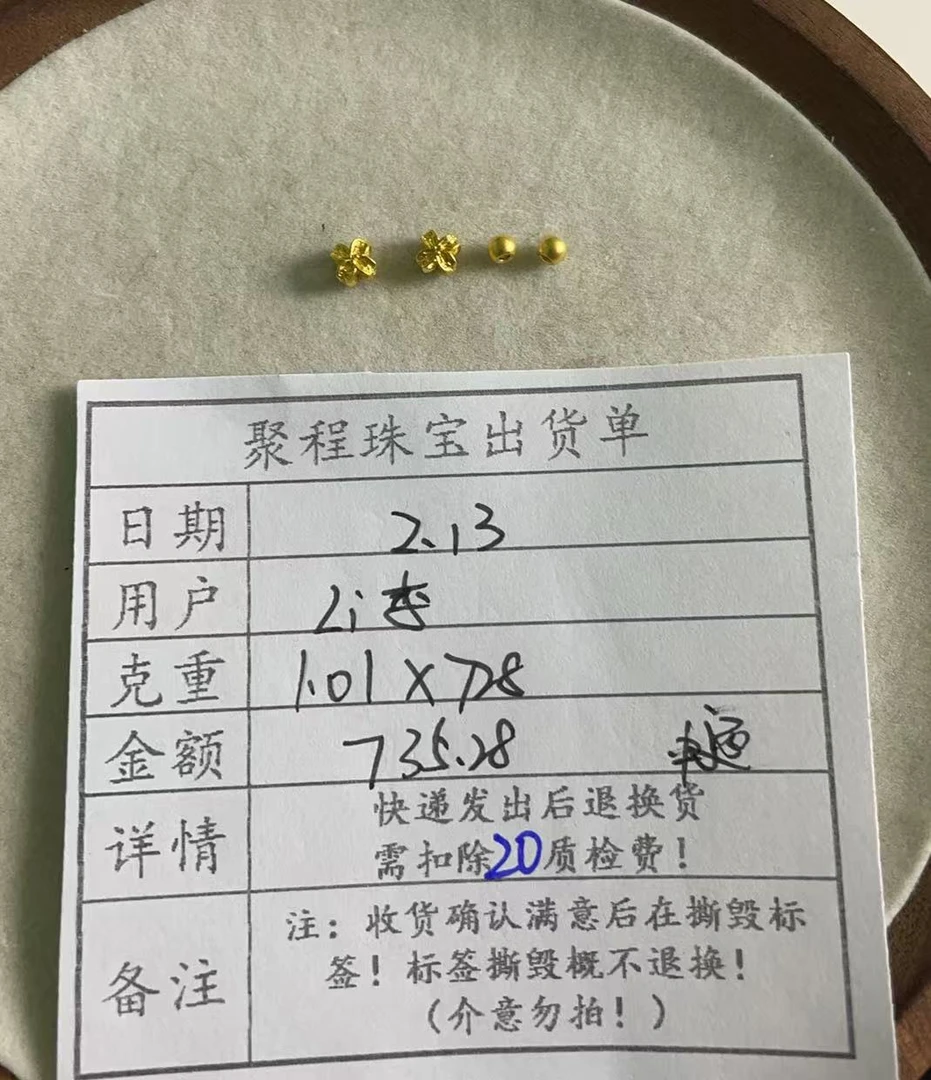 聚程珠宝出货单
日期 2.13
用户 Li李
克重 1.01 X 728
金额 735.28
详情 快递发出后退换货
需扣除20质检费！
备注 注：收货确认满意后在撕毁标
签！标签撕毁概不退换！
（介意勿拍！）